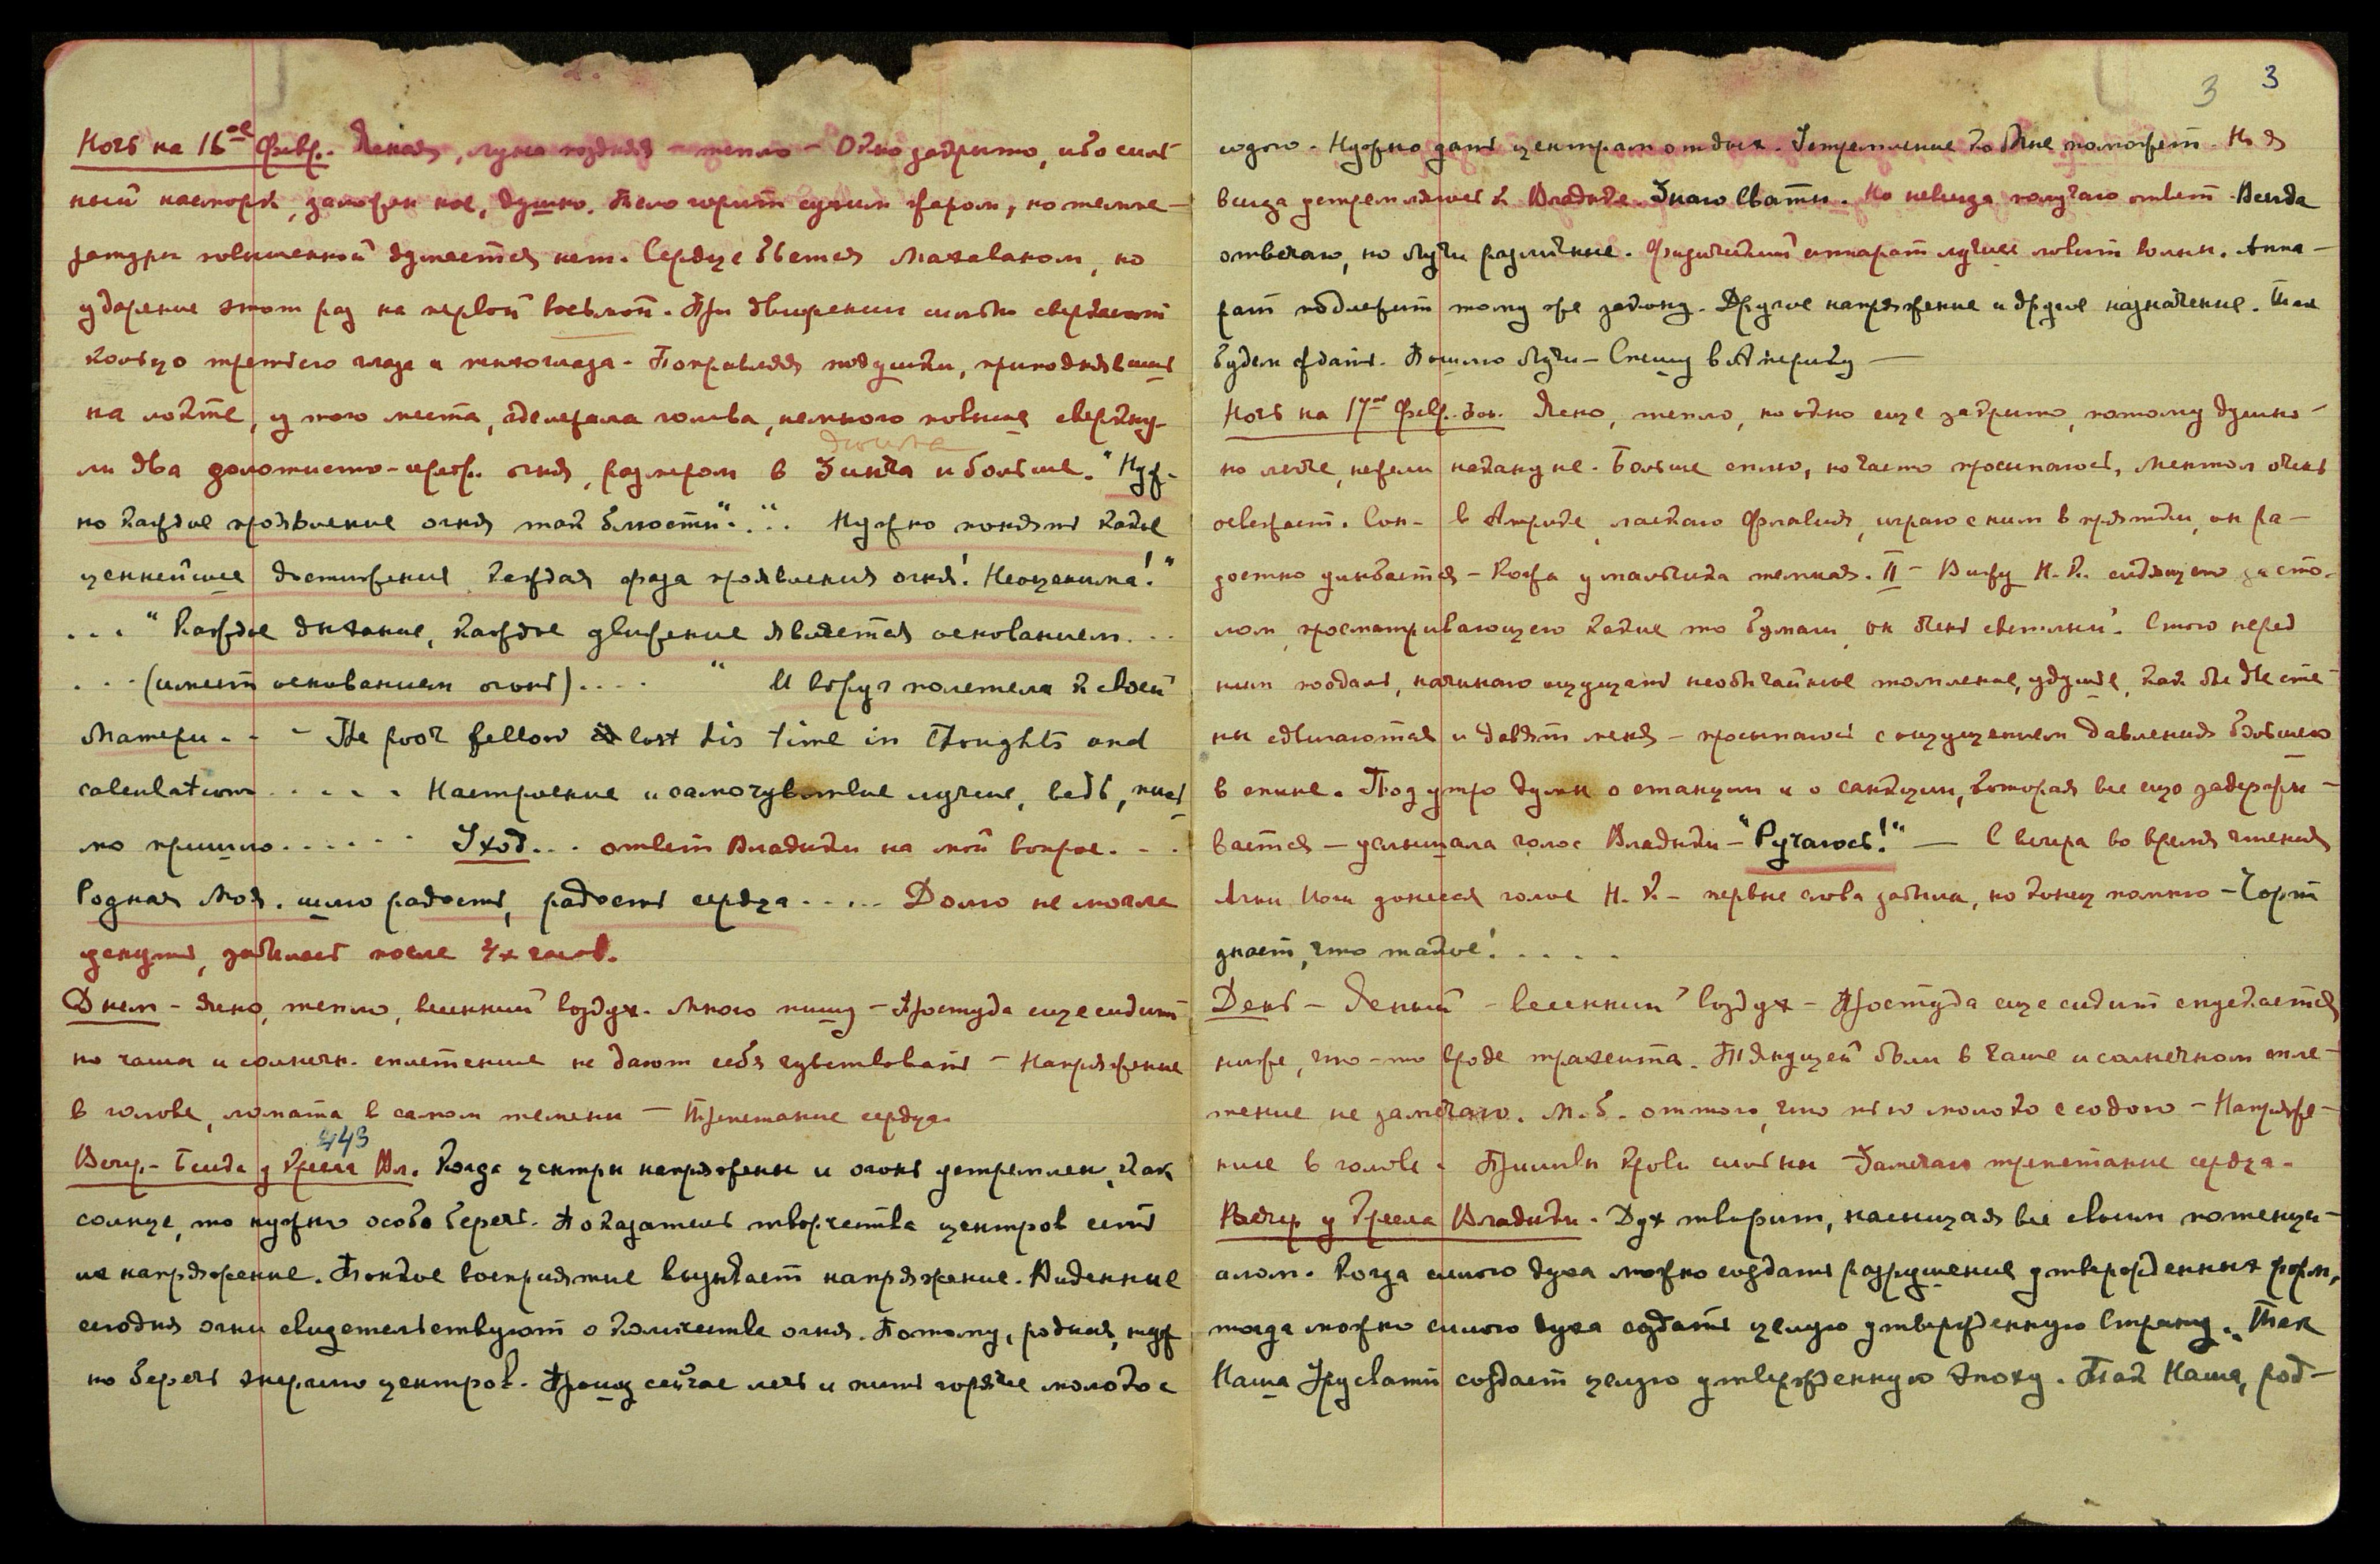 3 3
Ночь на 16ое Февр. Ясная, луна поздняя – тепло – Окно закрыто, ибо силь
ный насморк, заложен нос, душно. Тело горит сухим жаром, но темпе-
ратуры повышенной думается нет. Сердце бьется Махаваном, но
ударение этот раз на первой восьмой. При движении сильно
кольцо третьего глаза и Поправляя подушки, приподнявшись
на локте, у того места, где лежала голова, немного повыше сверкну-
ли два золотисто- огня, размером в и больше. "Нуж-
но каждое проявление огня так блюсти". ". . Нужно понять какие
ценнейшие достижения каждая фаза проявления огня! Неоценима!"
. . . "Каждое дыхание, каждое движение является основанием. . .
. . . (имеет основанием огонь). . . . " И вдруг полетела к своей
Матери. . – The poor fellow lost his time in thoughts and
calculations . . . . . Настроение и самочувствие лучше, ведь, пись-
мо пришло. . . . . . Уход. . . ответ Владыки на мой вопрос. . .
Родная Моя. шлю радость, радость сердца . . . . . Долго не могла
уснуть, забылась после 4х часов.
Днем – ясно, тепло, весенний воздух. Много пишу – Простуда еще сидит
но чаша и солнечн. сплетение не дают себя чувствовать – Напряжение
в голове, ломота в самом темени – Трепетание сердца.
443
Вечер. – Беседа у Кресла Вл. Когда центры напряжены и огонь устремлен, как
солнце, то нужно особо беречь. Показатель творчества центров есть
их напряжение. Тонкое восприятие вызывает напряжение. Виденные
сегодня огни свидетельствуют о количестве огня. Потому, родная, нуж
но беречь энергию центров. Прошу сейчас лечь и пить горячее молоко с
содою. Нужно дать центрам отдых. Устремление ко Мне поможет. Но я
всегда устремляюсь к Владыке. Знаю Свати. Но не всегда получаю ответ. Всегда
отвечаю, но Лучи различные. Физический аппарат лучше ловит волны. Аппа-
рат подлежит тому же закону. Другое напряжение и другое назначение. Так
будем ждать. Пошлю Лучи – Спешу в Америку —
Ночь на 17ое Февр. Ясно, тепло, но окно еще закрыто, потому душно –
но легче, нежели накануне. Больше сплю, но часто просыпаюсь, ментол очень
освежает. Сон – в ласкаю Флавия, играю с ним в прятки, он ра-
достно улыбается – Кожа у мальчика темная. II – Вижу Н.К. сидящего за сто-
лом, просматривающего какие то бумаги, он очень светлый. Стою перед
ним поодаль, начинаю ощущать необычайное томление, удушье, как бы две сте-
ны сдвигаются и давят меня – просыпаюсь с ощущением давления большего
в спине. Под утро думы о станции и о санкции, которая все еще задержи-
вается – услышала голос Владыки – "Ручаюсь!" — С вечера во время чтения
Агни Йоги донесся голос Н.К. – первые слова забыла, но конец помню – Чорт
знает, что такое! . . . . .
День – Ясный – весенний воздух – Простуда еще сидит спускается
ниже, что-то вроде трахеита. Тянущей боли в Чаше и солнечном спле-
тение не замечаю. М.б. оттого, что пью молоко с содою – Напряже-
ние в голове. Приливы крови сильны – Замечаю трепетание сердца.
Вечер у Кресла Владыки. Дух творит, насыщая все своим потенци-
алом. Когда силою духа можно создать разрушение утвержденных форм,
тогда можно силою духа создать целую утвержденную Страну. Так
Наша Урусвати создает целую утвержденную эпоху. Так Наша, род-